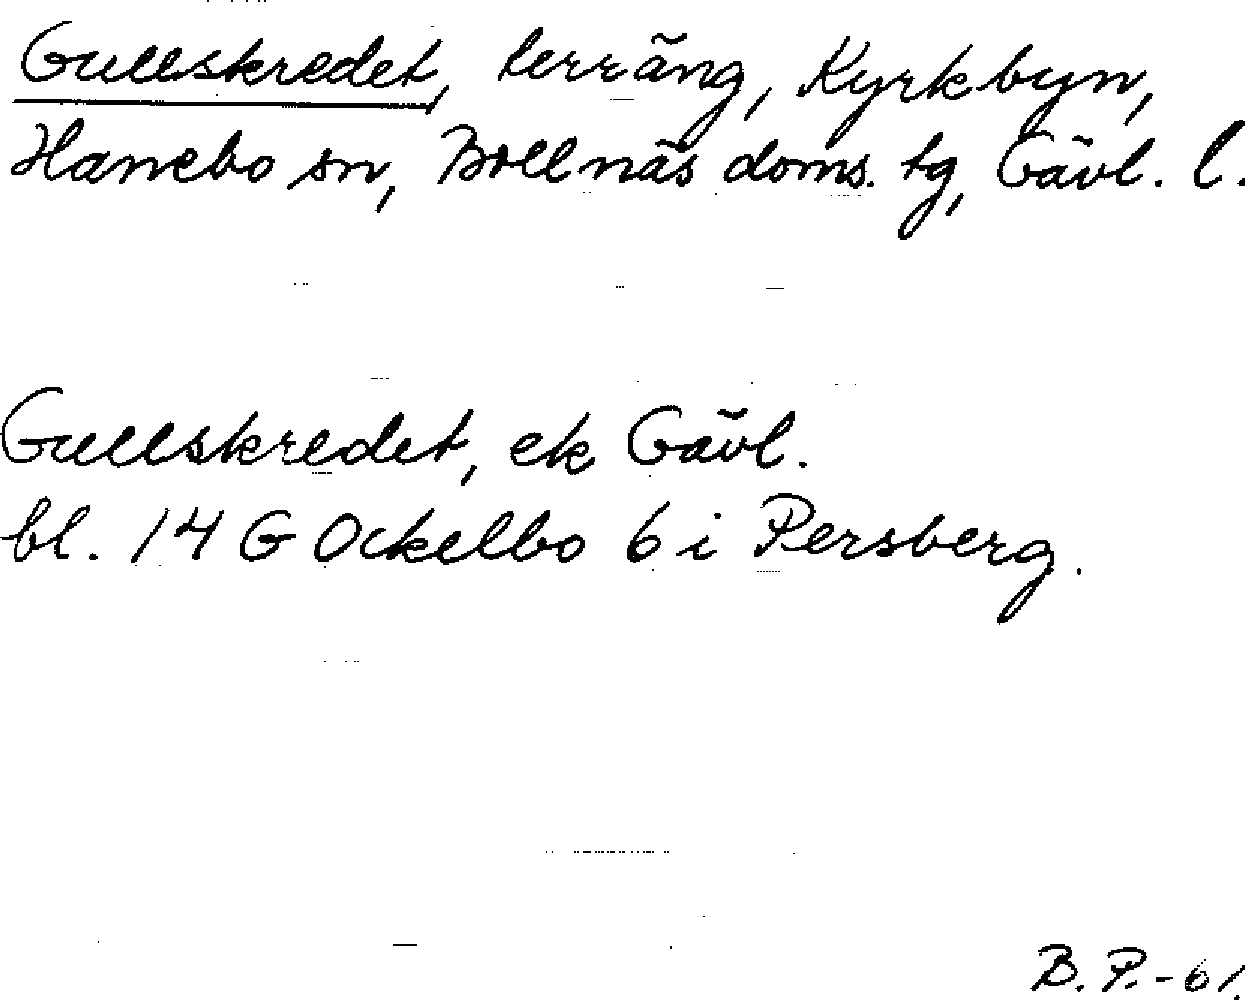 Gullskredet, terräng, Kyrkbyn,
Hanebo sn, Bollnäs doms. tg, Gävl. l.
Gullskredet, ek Gävl.
bl. 14 G Ockelbo 6 i Persberg.
B. P. - 61.